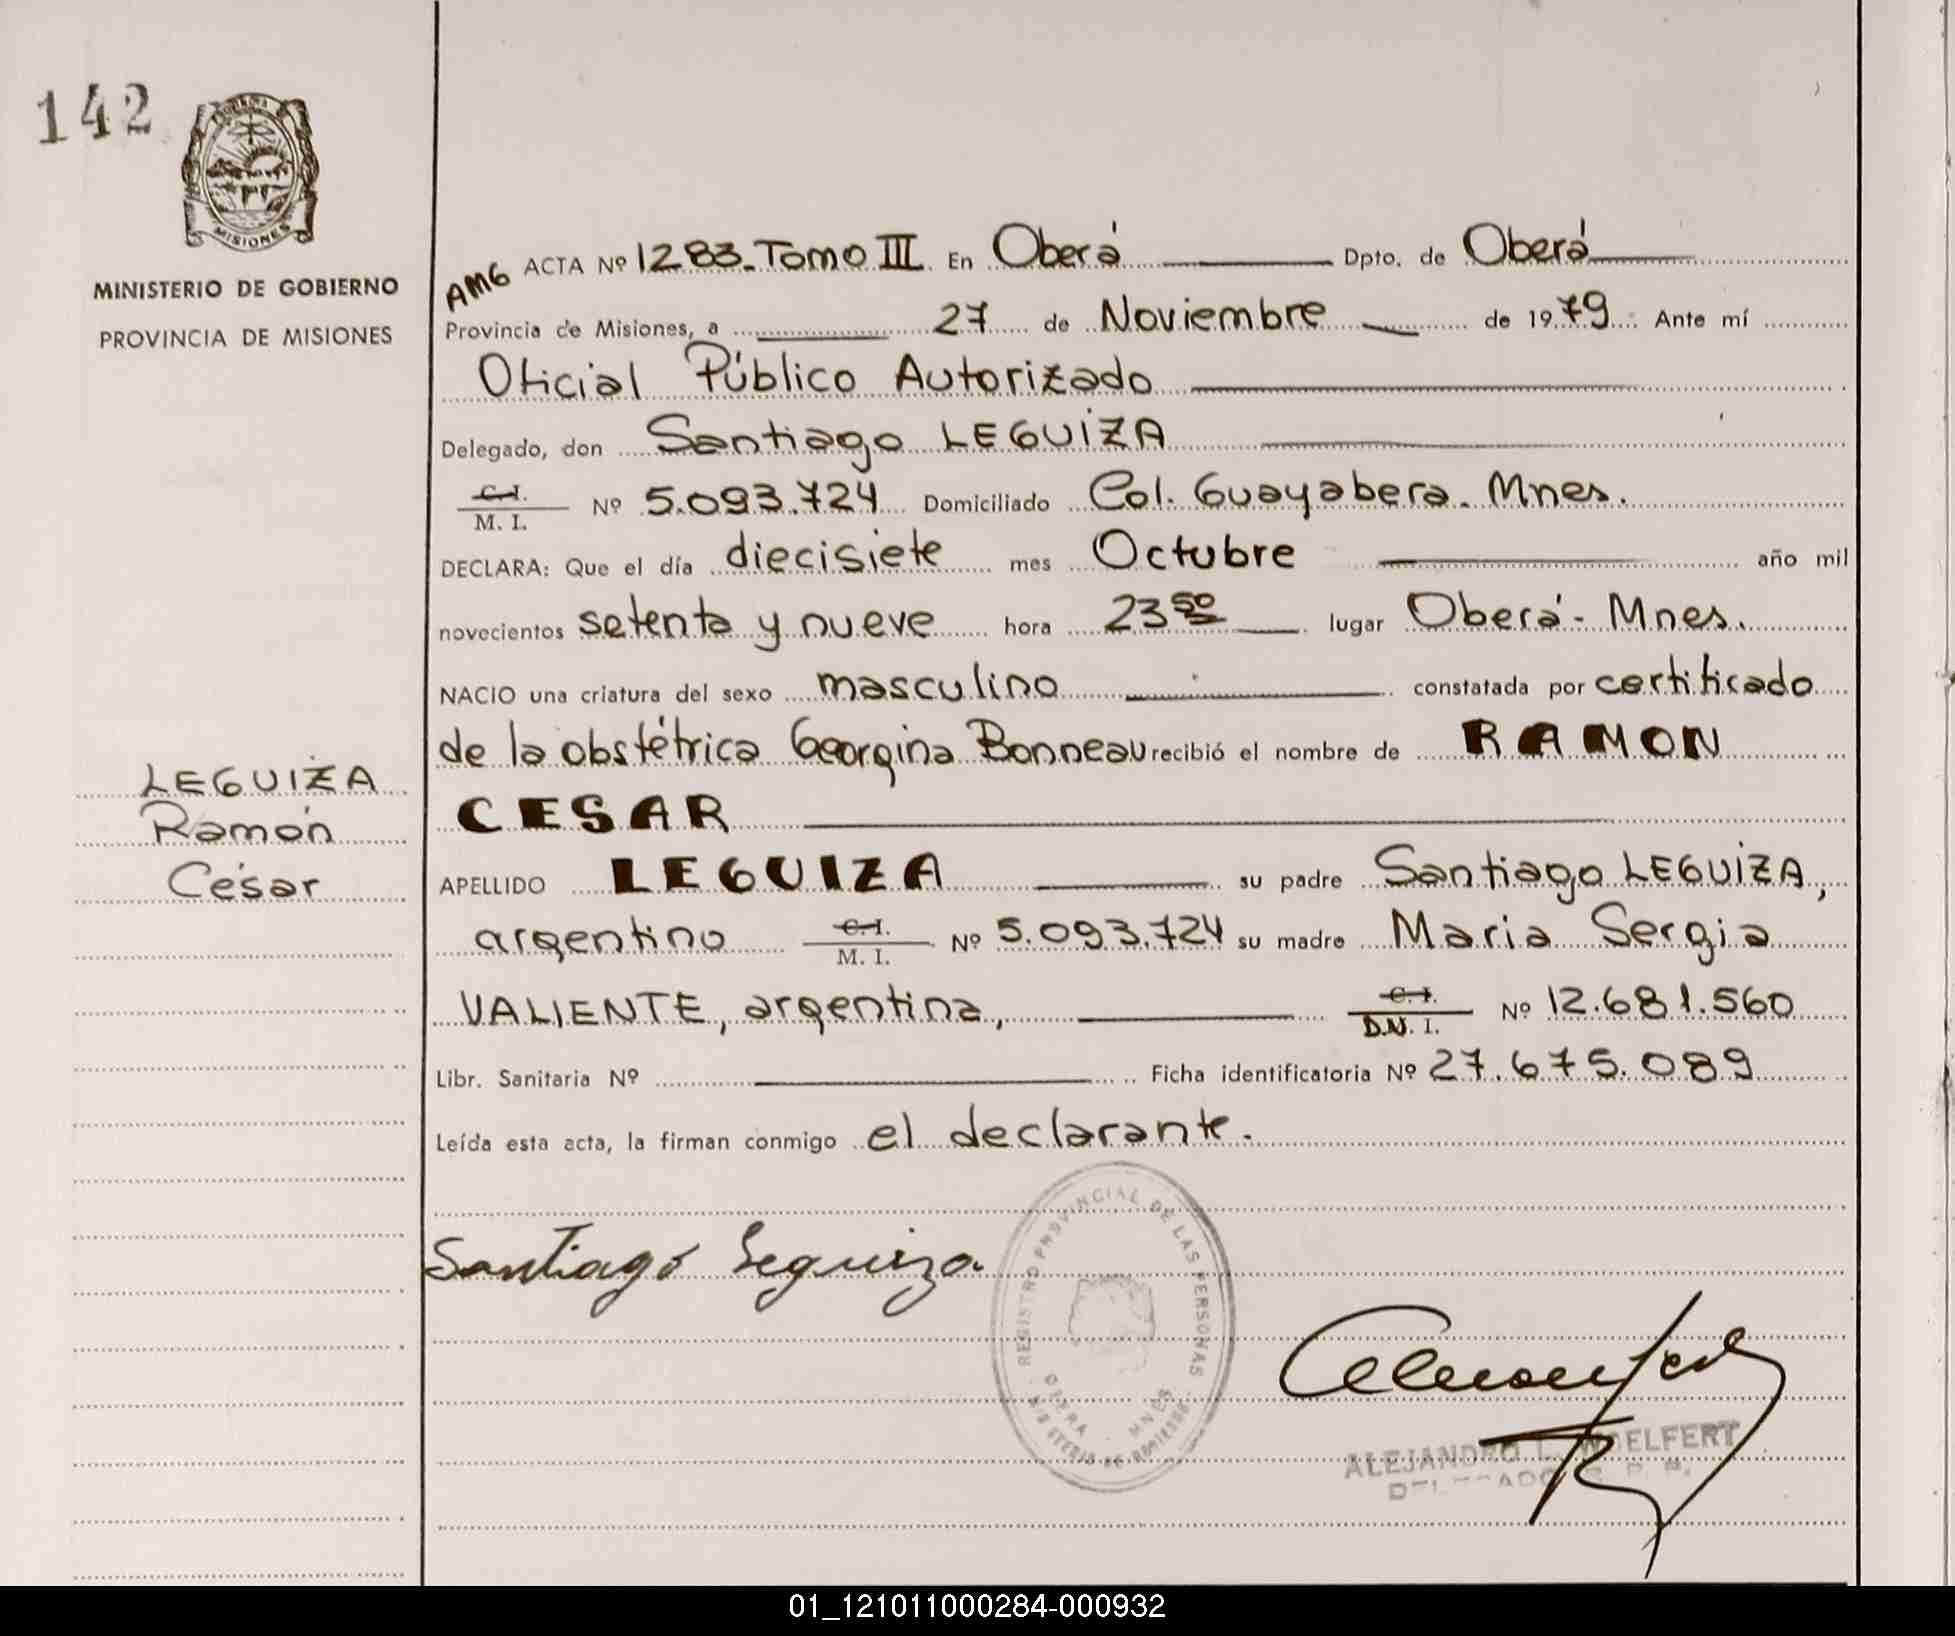 142
MISIONES
MINISTERIO DE GOBIERNO
PROVINCIA DE MISIONES
LEGUIZA
Ramón
César
AMG ACTA Nº 1283-Tomo III En Oberá Dpto. de Oberá
Provincia de Misiones, a 27 de Noviembre de 1979 Ante mí
Oficial Público Autorizado
Delegado, don Santiago LEGUIZA
C.I.
M. I. Nº 5.093.724 Domiciliado Col. Guayabera. Mnes.
DECLARA: Que el día diecisiete mes Octubre año mil
novecientos setenta y nueve hora 23 50 lugar Oberá - Mnes.
NACIO una criatura del sexo masculino constatada por certificado
de la obstétrica Georgina Bonneau recibió el nombre de RAMON
CESAR
APELLIDO LEGUIZA su padre Santiago LEGUIZA,
argentino C.I. M. I. Nº 5.093.724 su madre Maria Sergia
VALIENTE, argentina, C.I. D.N. I. Nº 12.681.560
Libr. Sanitaria Nº Ficha identificatoria Nº 27.675.089
Leída esta acta, la firman conmigo el declarante.
Santiago Leguiza
REGISTRO PROVINCIAL DE LAS PERSONAS
OBERA - MNES
MINISTERIO DE GOBIERNO
ALEJANDRO L. WOELFERT
DELEGADO R. P. P.
01_121011000284-000932